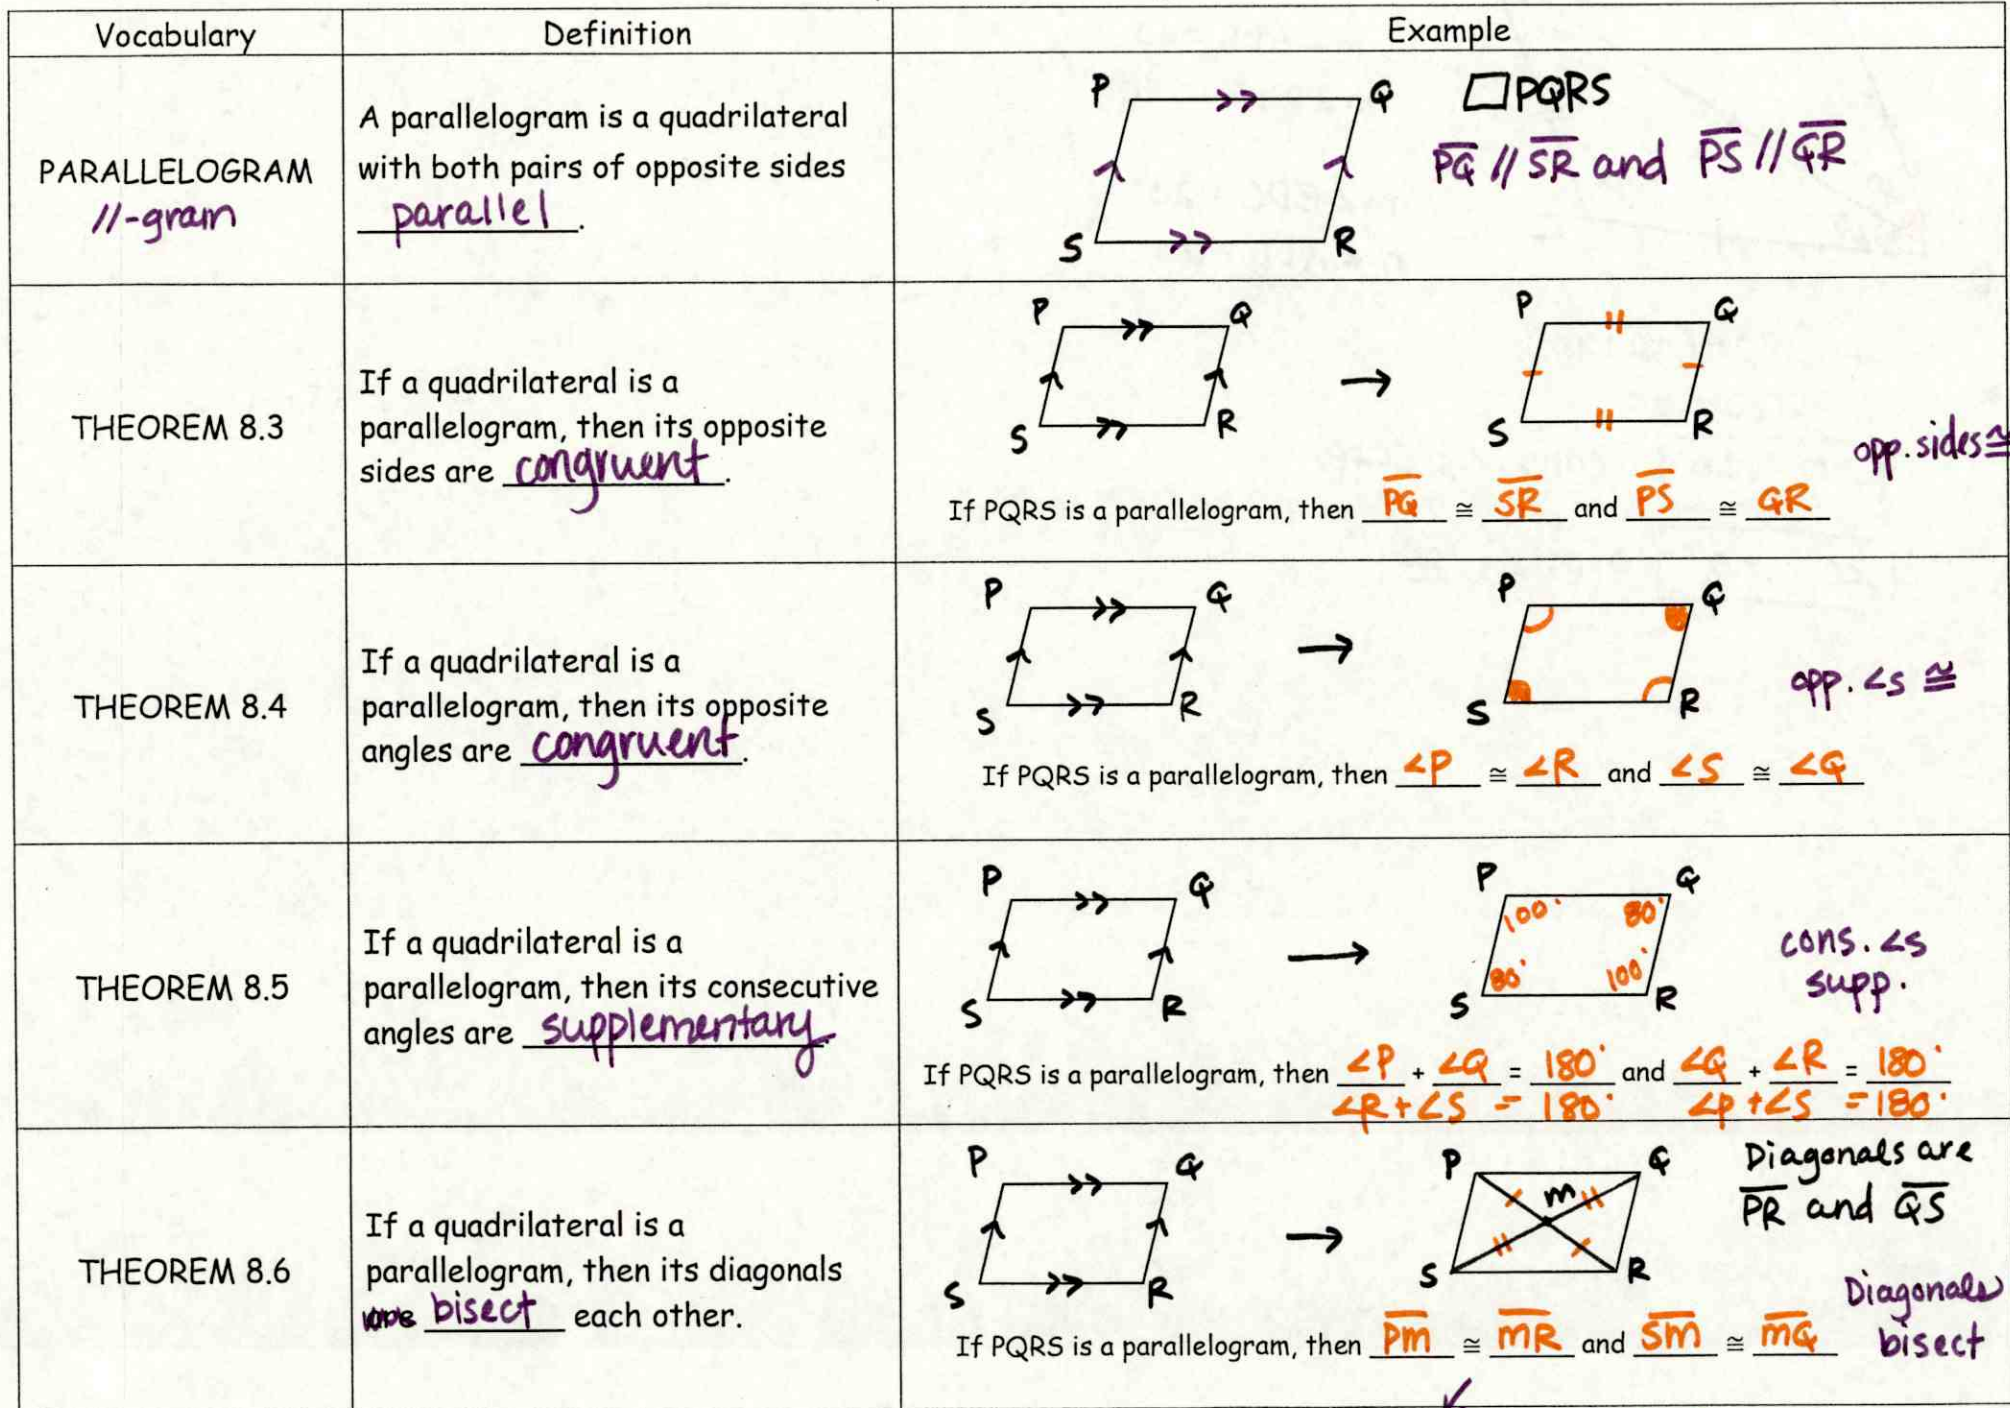 Vocabulary
Definition
Example
PARALLELOGRAM
//-gram
A parallelogram is a quadrilateral
with both pairs of opposite sides
parallel.
P Q
S R
▱PQRS
PQ // SR and PS // QR
THEOREM 8.3
If a quadrilateral is a
parallelogram, then its opposite
sides are congruent.
P Q
S R
→
P Q
S R
opp. sides ≅
If PQRS is a parallelogram, then PQ ≅ SR and PS ≅ QR
THEOREM 8.4
If a quadrilateral is a
parallelogram, then its opposite
angles are congruent.
P Q
S R
→
P Q
S R
opp. ∠s ≅
If PQRS is a parallelogram, then ∠P ≅ ∠R and ∠S ≅ ∠Q
THEOREM 8.5
If a quadrilateral is a
parallelogram, then its consecutive
angles are supplementary.
P Q
S R
→
P Q
100° 80°
80° 100°
S R
cons. ∠s
supp.
If PQRS is a parallelogram, then ∠P + ∠Q = 180° and ∠Q + ∠R = 180°
∠R + ∠S = 180° ∠P + ∠S = 180°
THEOREM 8.6
If a quadrilateral is a
parallelogram, then its diagonals
bisect each other.
P Q
S R
→
P Q
m
S R
Diagonals are
PR and QS
Diagonals
bisect
If PQRS is a parallelogram, then Pm ≅ mR and Sm ≅ mQ